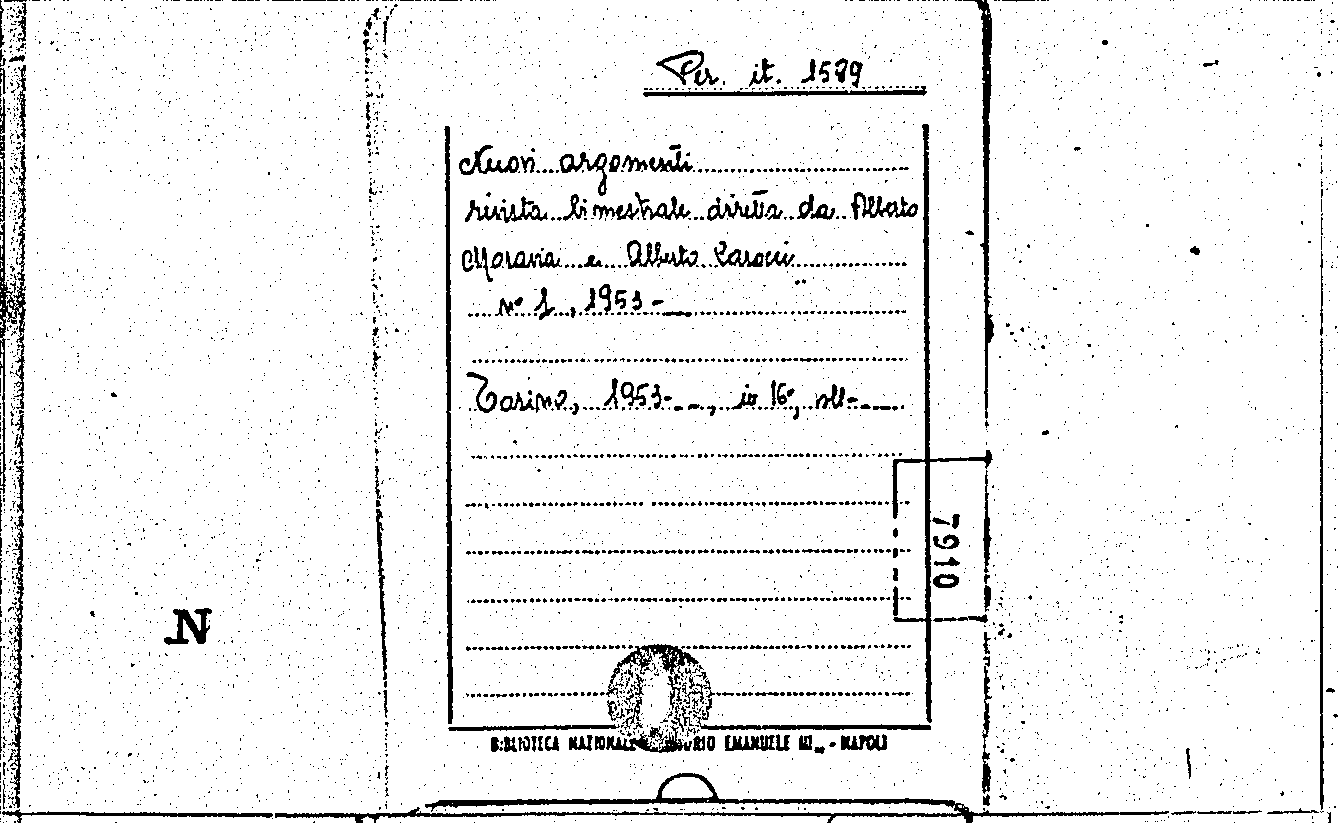 Per. it. 1589
Nuovi argomenti
rivista bimestrale diretta da Alberto
Moravia e Alberto Carocci
No 1, 1953-
Torino, 1953- , in 16°, ill-
7910
N
BIBLIOTECA NAZIONALE EMANUELE III - NAPOLI